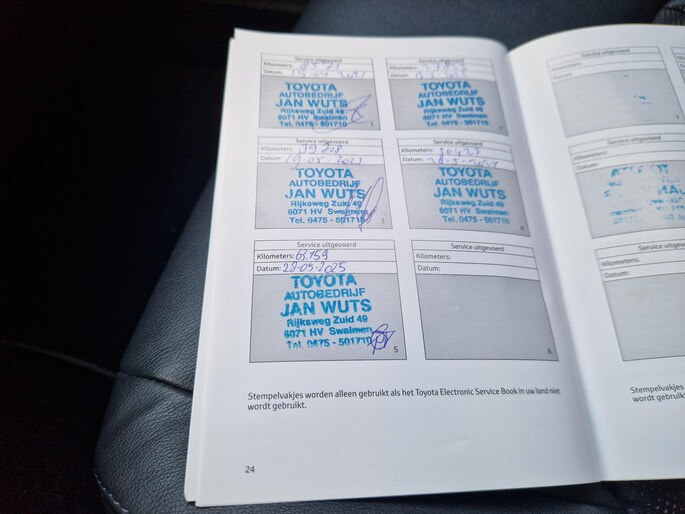 Service uitgevoerd
Kilometers:
Datum:
TOYOTA
AUTOBEDRIJF
JAN WUTS
Rijksweg Zuid 49
6071 HV Swalmen
Tel. 0475 - 501710
1
Service uitgevoerd
Kilometers:
Datum:
TOYOTA
AUTOBEDRIJF
JAN WUTS
Rijksweg Zuid 49
6071 HV Swalmen
Tel. 0475 - 501710
Service uitgevoerd
Kilometers: 39.728
Datum: 19-05-2023
TOYOTA
AUTOBEDRIJF
JAN WUTS
Rijksweg Zuid 49
6071 HV Swalmen
Tel. 0475 - 501710
3
Service uitgevoerd
Kilometers:
Datum:
TOYOTA
AUTOBEDRIJF
JAN WUTS
Rijksweg Zuid 49
6071 HV Swalmen
Tel. 0475 - 501710
4
Service uitgevoerd
Kilometers: 61.159
Datum: 28-05-2025
TOYOTA
AUTOBEDRIJF
JAN WUTS
Rijksweg Zuid 49
6071 HV Swalmen
Tel. 0475 - 501710
5
Service uitgevoerd
Kilometers:
Datum:
6
Stempelvakjes worden alleen gebruikt als het Toyota Electronic Service Book in uw land niet
wordt gebruikt.
24
Service uitgevoerd
Kilometers:
Datum:
7
Service uitgevoerd
Kilometers:
Datum:
Service uitgevoerd
Kilometers:
Datum:
Stempelvakjes
wordt gebruikt.